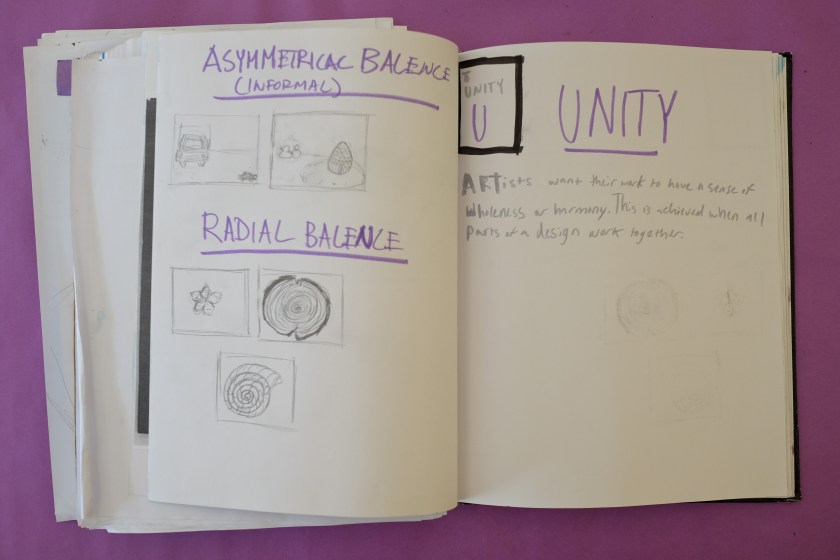 ASYMMETRICAL BALENCE
(INFORMAL)
RADIAL BALENCE
8
UNITY
U
UNITY
ARTists want their work to have a sense of
wholeness or harmony. This is achieved when all
parts of a design work together.